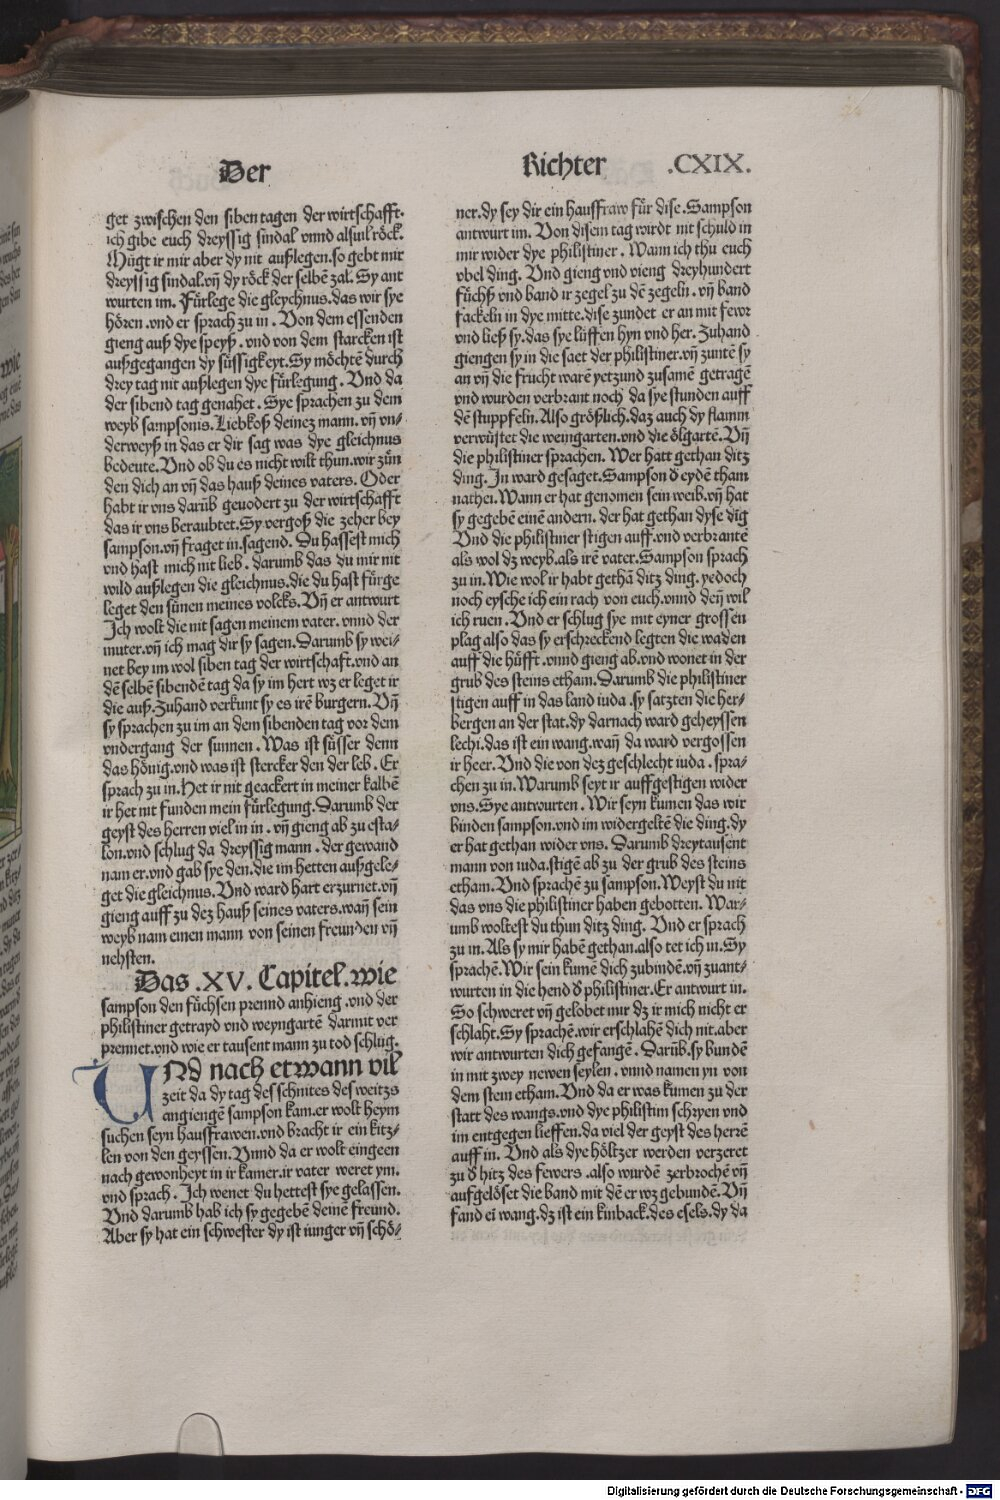 Der
Richter .CXIX.
get zwischen den siben tagen der wirtschafft.
ich gibe euch dreyssig sindal vnnd alsuil röck.
Mügt ir mir aber dy nit außlegen. so gebt mir
dreyssig sindal. vñ dy röck der selbē zal. Sy ant
wurten im. Fürlege die gleychnus. das wir sye
hören. vnd er sprach zu in. Von dem essenden
gieng auß dye speyß. vnd von dem starcken ist
außgegangen dy süssigkeyt. Sy möchtē durch
drey tag nit außlegen dye fürlegung. Vnd da
der sibend tag genahet. Sye sprachen zu dem
weyb sampsonis. Liebkoß deinez mann. vñ vn⸗
derweyß in das er dir sag was dye gleichnus
bedeute. Vnd ob du es nicht wilt thun. wir zün
den dich an vñ das hauß deines vaters. Oder
habt ir vns darüb geuodert zu der wirtschafft
das ir vns beraubtet. Sy vergoß die zeher bey
sampson. vñ fraget in. sagend. Du hassest mich
vnd hast mich nit lieb. darumb das du mir nit
wild außlegen die gleichnus. die du hast fürge
leget den sünen meines volcks. Vñ er antwurt
Ich wolt die nit sagen meinem vater. vnnd der
muter. vñ ich mag dir sy sagen. Darumb sy wei⸗
net bey im wol siben tag der wirtschaft. vnd an
dē selbē sibendē tag da sy im hert wz er leget ir
die auß. Zuhand verkunt sy es irē burgern. Vñ
sy sprachen zu im an dem sibenden tag vor dem
vndergang der sunnen. Was ist süsser denn
das hönig. vnd was ist stercker den der leb. Er
sprach zu in. Het ir nit geackert in meiner kalbē
ir het nit funden mein fürlegung. Darumb der
geyst des herren viel in in. vñ gieng ab zu esta⸗
lon. vnd schlug da dreyssig mann. der gewand
nam er. vnd gab sye den. die im hetten außgele⸗
get die gleichnus. Vnd ward hart erzurnet. vñ
gieng auff zu dez hauß seines vaters. wañ sein
weyb nam einen mann von seinen freunden vñ
nehsten.
Das .XV. Capitel. wie
sampson den füchsen prennd anhieng. vnd der
philistiner getrayd vnd weyngartē darmit ver
prennet. vnd wie er tausent mann zu tod schlug.
UNd nach etwann vil
zeit da dy tag des schnites des weitzs
angiengē sampson kam. er wolt heym
suchen seyn haussfrawen. vnd bracht ir ein kitz⸗
len von den geyssen. Vnnd da er wolt eingeen
nach gewonheyt in ir kamer. ir vater weret ym.
vnd sprach. Ich wenet du hettest sye gelassen.
Vnd darumb hab ich sy gegebē deinē freund.
Aber sy hat ein schwester dy ist iunger vñ schö⸗
ner. dy sey dir ein haussfraw für dise. Sampson
antwurt im. Von disem tag wirdt nit schuld in
mir wider dye philistiner. Wann ich thu euch
vbel ding. Vnd gieng vnd vieng dreyhundert
füchß vnd band ir zegel zu dē zegeln. vñ band
fackeln in dye mitte. dise zundet er an mit fewr
vnd ließ sy. das sye lüffen hyn vnd her. Zuhand
giengen sy in die saet der philistiner. vñ zuntē sy
an vñ die frucht warē yetzund zusamē getragē
vnd wurden verbrant noch da sye stunden auff
dē stuppfeln. Also größlich. daz auch dy flamm
verwüstet die weingarten. vnd die ölgartē. Vñ
die philistiner sprachen. Wer hatt gethan ditz
ding. In ward gesaget. Sampson ð eydē tham
nathei. Wann er hat genomen sein weib. vñ hat
sy gegebē einē andern. der hat gethan dyse dīg
Vnd die philistiner stigen auff. vnd verbrantē
als wol dz weyb. als irē vater. Sampson sprach
zu in. Wie wol ir habt gethā ditz ding. yedoch
noch eysche ich ein rach von euch. vnnd deñ wil
ich ruen. Vnd er schlug sye mit eyner grossen
plag also das sy erschreckend legten die waden
auff die hüfft. vnnd gieng ab. vnd wonet in der
grub des steins etham. Darumb die philistiner
stigen auff in das land iuda. sy satzten die her⸗
bergen an der stat. dy darnach ward geheyssen
lechi. das ist ein wang. wañ da ward vergossen
ir heer. Vnd die von dez geschlecht iuda. spra⸗
chen zu in. Warumb seyt ir auffgestigen wider
vns. Sye antwurten. Wir seyn kumen das wir
binden sampson. vnd im widergeltē die ding. dy
er hat gethan wider vns. Darumb dreytausent
mann von iuda. stigē ab zu der grub des steins
etham. Vnd sprachē zu sampson. Weyst du nit
das vns die philistiner haben gebotten. War⸗
umb woltest du thun ditz ding. Vnd er sprach
zu in. Als sy mir habē gethan. also tet ich in. Sy
sprachē. Wir sein kumē dich zubindē. vñ zuant⸗
wurten in die hend ð philistiner. Er antwurt in.
So schweret vñ gelobet mir dz ir mich nicht er
schlaht. Sy sprachē. wir erschlahē dich nit. aber
wir antwurten dich gefangē. Darüb. sy bundē
in mit zwey newen seylen. vnnd namen yn von
dem stein etham. Vnd da er was kumen zu der
statt des wangs. vnd dye philistim schryen vnd
im entgegen lieffen. da viel der geyst des herrē
auff in. Vnd als dye höltzer werden verzeret
zu ð hitz des fewers. also wurdē zerbrochē vñ
aufgelöset die band mit dē er wz gebundē. Vñ
fand eī wang. dz ist ein kinback. des esels. dy da
Digitalisierung gefördert durch die Deutsche Forschungsgemeinschaft - DFG